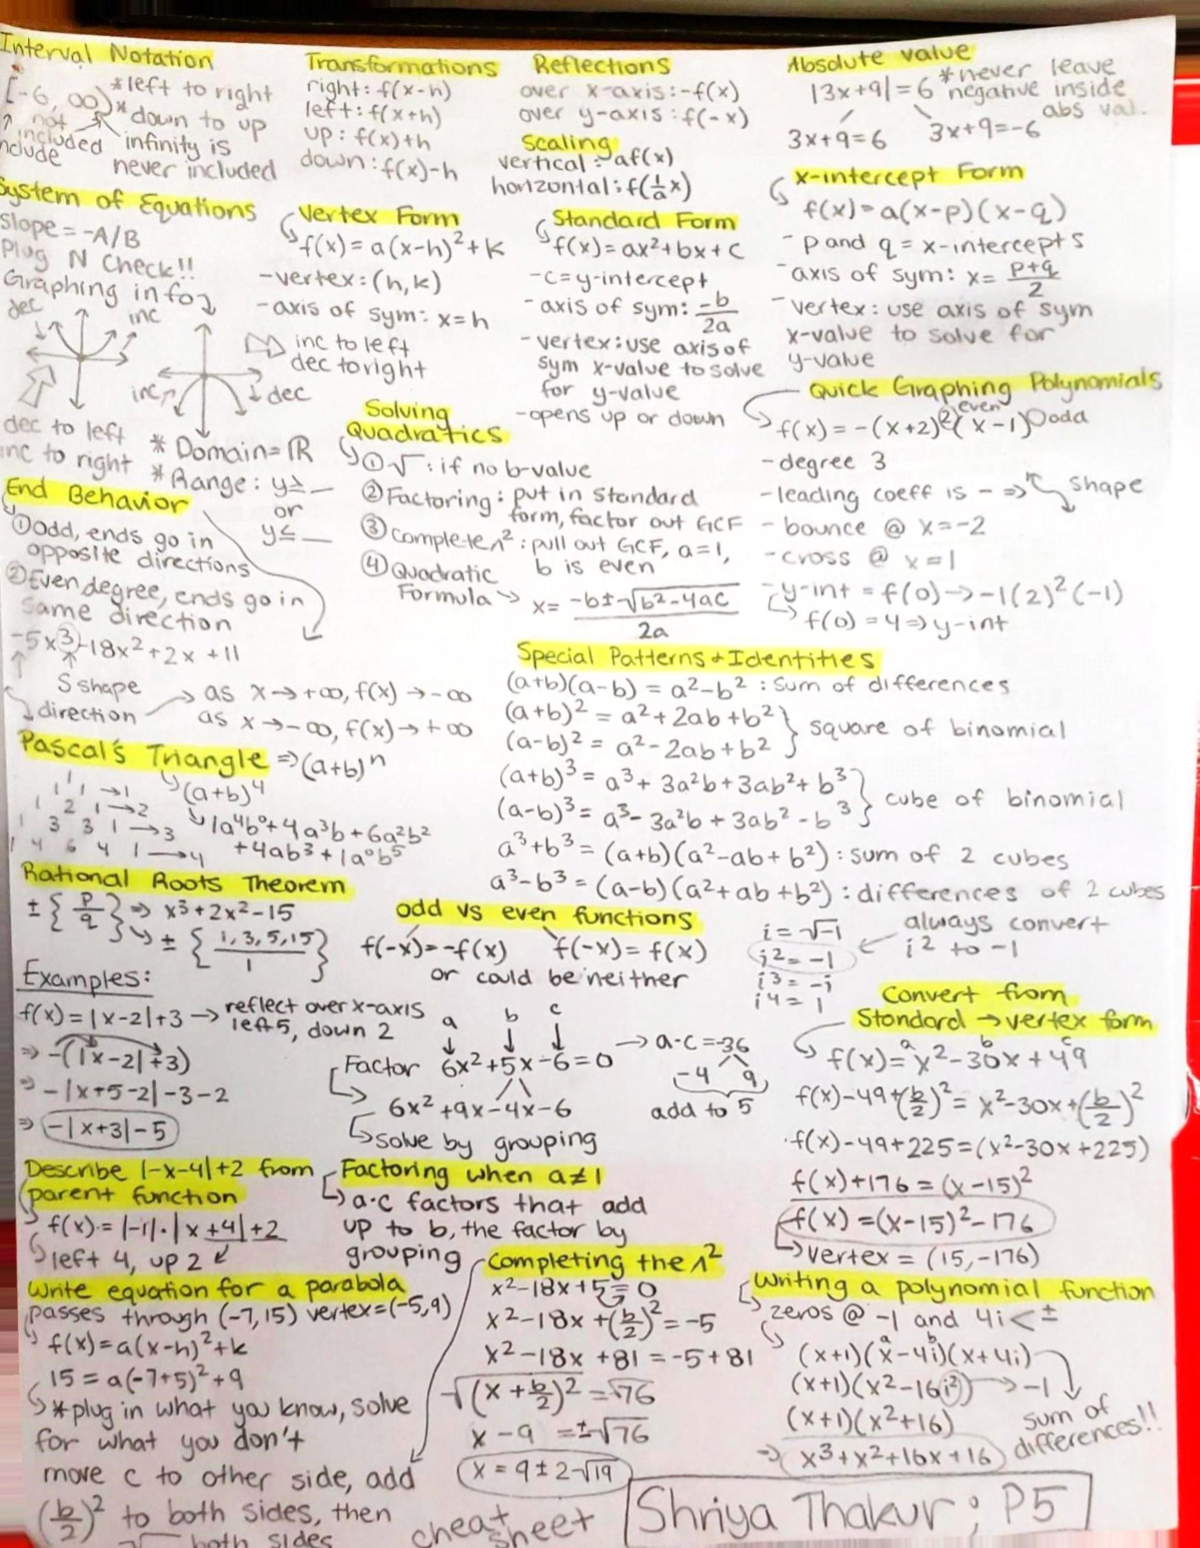 Interval Notation
[-6, ∞) *left to right
*down to up
↑ not included infinity is
include never included
Transformations
right: f(x-h)
left: f(x+h)
up: f(x)+h
down: f(x)-h
Reflections
over x-axis: -f(x)
over y-axis: f(-x)
Scaling
vertical: af(x)
horizontal: f(1/a x)
Absolute value
|3x+9|=6 *never leave
negative inside
abs val.
3x+9=6 3x+9=-6
System of Equations
Slope = -A/B
Plug N Check!!
Graphing info
dec inc
inc dec
dec to left
inc to right
inc to left
dec to right
* Domain = ℝ
* Range: y≥ __
or
y≤ __
Vertex Form
f(x) = a(x-h)²+k
-vertex: (h,k)
-axis of sym: x=h
Standard Form
f(x)=ax²+bx+c
-c=y-intercept
-axis of sym: -b/2a
-vertex: use axis of
sym x-value to solve
for y-value
-opens up or down
x-intercept Form
f(x)=a(x-p)(x-q)
- p and q = x-intercepts
- axis of sym: x= p+q/2
- vertex: use axis of sym
x-value to solve for
y-value
Solving
Quadratics
① √ : if no b-value
② Factoring: put in standard
form, factor out GCF
③ Complete ∧²: pull out GCF, a=1,
b is even
④ Quadratic
Formula → x= -b±√b²-4ac / 2a
Quick Graphing Polynomials
f(x) = -(x+2)²(x-1) even odd
-degree 3
-leading coeff is - ⇒ shape
- bounce @ x=-2
-cross @ x=1
-y-int = f(0) → -1(2)²(-1)
→ f(0)=4 ⇒ y-int
End Behavior
① Odd, ends go in
opposite directions
② Even degree, ends go in
same direction
-5x³-18x²+2x+11
S shape
direction → as x→+∞, f(x)→-∞
as x→-∞, f(x)→+∞
Special Patterns + Identities
(a+b)(a-b) = a²-b² : sum of differences
(a+b)² = a²+2ab+b²
(a-b)² = a²-2ab+b² } square of binomial
(a+b)³ = a³+3a²b+3ab²+b³
(a-b)³ = a³-3a²b+3ab²-b³ } cube of binomial
a³+b³ = (a+b)(a²-ab+b²): sum of 2 cubes
a³-b³ = (a-b)(a²+ab+b²): differences of 2 cubes
Pascal's Triangle ⇒ (a+b)ⁿ
1 1 →1
1 2 1 →2
1 3 3 1 →3
1 4 6 4 1 →4
(a+b)⁴
1a⁴b⁰+4a³b+6a²b²
+4ab³+1a⁰b⁵
Rational Roots Theorem
± {p/q} ⇒ x³+2x²-15
→ ± {1,3,5,15 / 1}
odd vs even functions
f(-x)=-f(x) f(-x)=f(x)
or could be neither
i=√-1
i²=-1
i³=-i
i⁴=1
always convert
i² to -1
Examples:
f(x)=|x-2|+3 → reflect over x-axis
left 5, down 2
⇒ -(|x-2|+3)
⇒ -|x+5-2|-3-2
⇒ -|x+3|-5
a b c
Factor 6x²+5x-6=0 → a·c=-36
-4 9
add to 5
6x²+9x-4x-6
solve by grouping
Convert from
Standard → vertex form
a b c
f(x)=x²-30x+49
f(x)-49+(b/2)²=x²-30x+(b/2)²
f(x)-49+225=(x²-30x+225)
f(x)+176=(x-15)²
f(x)=(x-15)²-176
vertex = (15,-176)
Describe |-x-4|+2 from
parent function
f(x)=|-1|·|x+4|+2
left 4, up 2
Factoring when a≠1
a·c factors that add
up to b, the factor by
grouping
Write equation for a parabola
passes through (-7,15) vertex=(-5,9)
f(x)=a(x-h)²+k
15=a(-7+5)²+9
*plug in what you know, solve
for what you don't
Completing the ∧²
x²-18x+5=0
x²-18x+(b/2)²=-5
x²-18x+81=-5+81
√(x+b/2)²=√76
x-9=±√76
x=9±2√19
move c to other side, add
(b/2)² to both sides, then
√ both sides
Writing a polynomial function
zeros @ -1 and 4i < ±
a b
(x+1)(x-4i)(x+4i)
(x+1)(x²-16i²) → -1
(x+1)(x²+16)
sum of
differences!!
⇒ x³+x²+16x+16
cheat
sheet
Shriya Thakur; P5